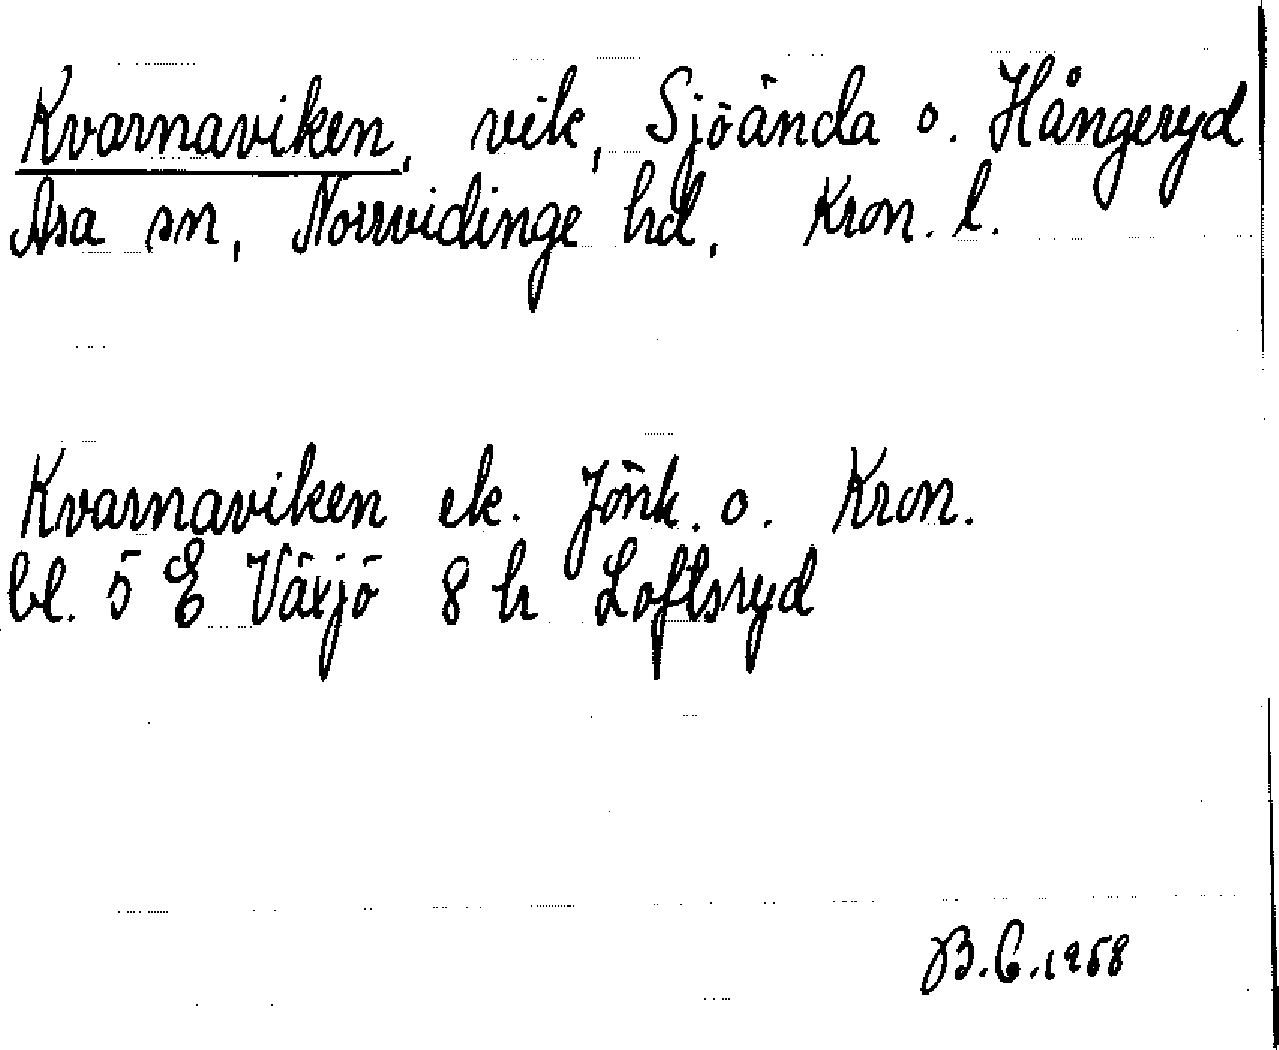 Kvarnaviken, vik, Sjöända o. Hångeryd
Asa sn, Norrvidinge hd, Kron. l.
Kvarnaviken ek. Jönk. o. Kron.
bl. 5 E Växjö 8 h Loftsryd
B.C. 1958